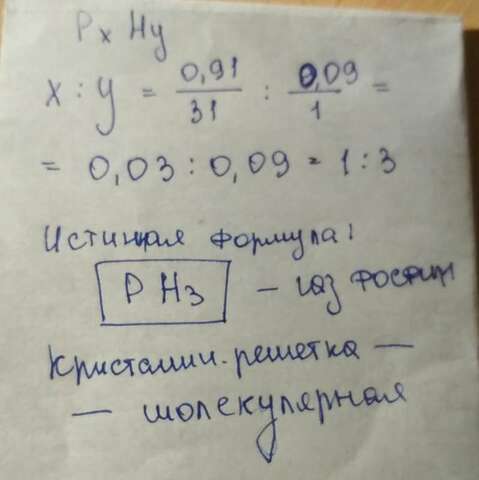 Px Hy
x : y = 0,91/31 : 0,09/1 =
= 0,03 : 0,09 = 1 : 3
Истинная формула:
PH3 — газ фосфин
Кристаллич. решетка —
— молекулярная